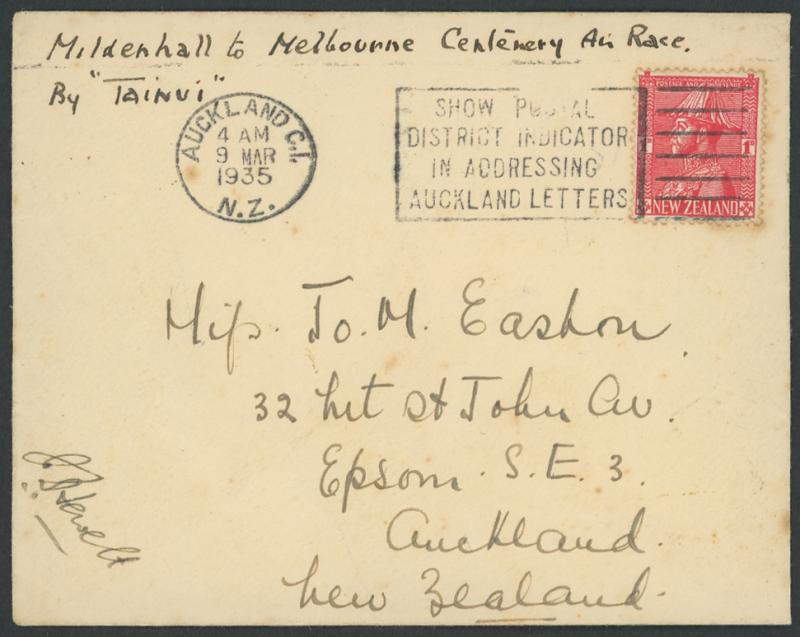 Mildenhall to Melbourne Centenery Air Race.
By "TAINUI"
AUCKLAND C.1.
4 AM
9 MAR
1935
N.Z.
SHOW POSTAL
DISTRICT INDICATOR
IN ADDRESSING
AUCKLAND LETTERS
1D
NEW ZEALAND
Miss. Jo. M. Easton.
32 Mt St John Av.
Epsom. S.E. 3.
Auckland.
New Zealand.
Hewett